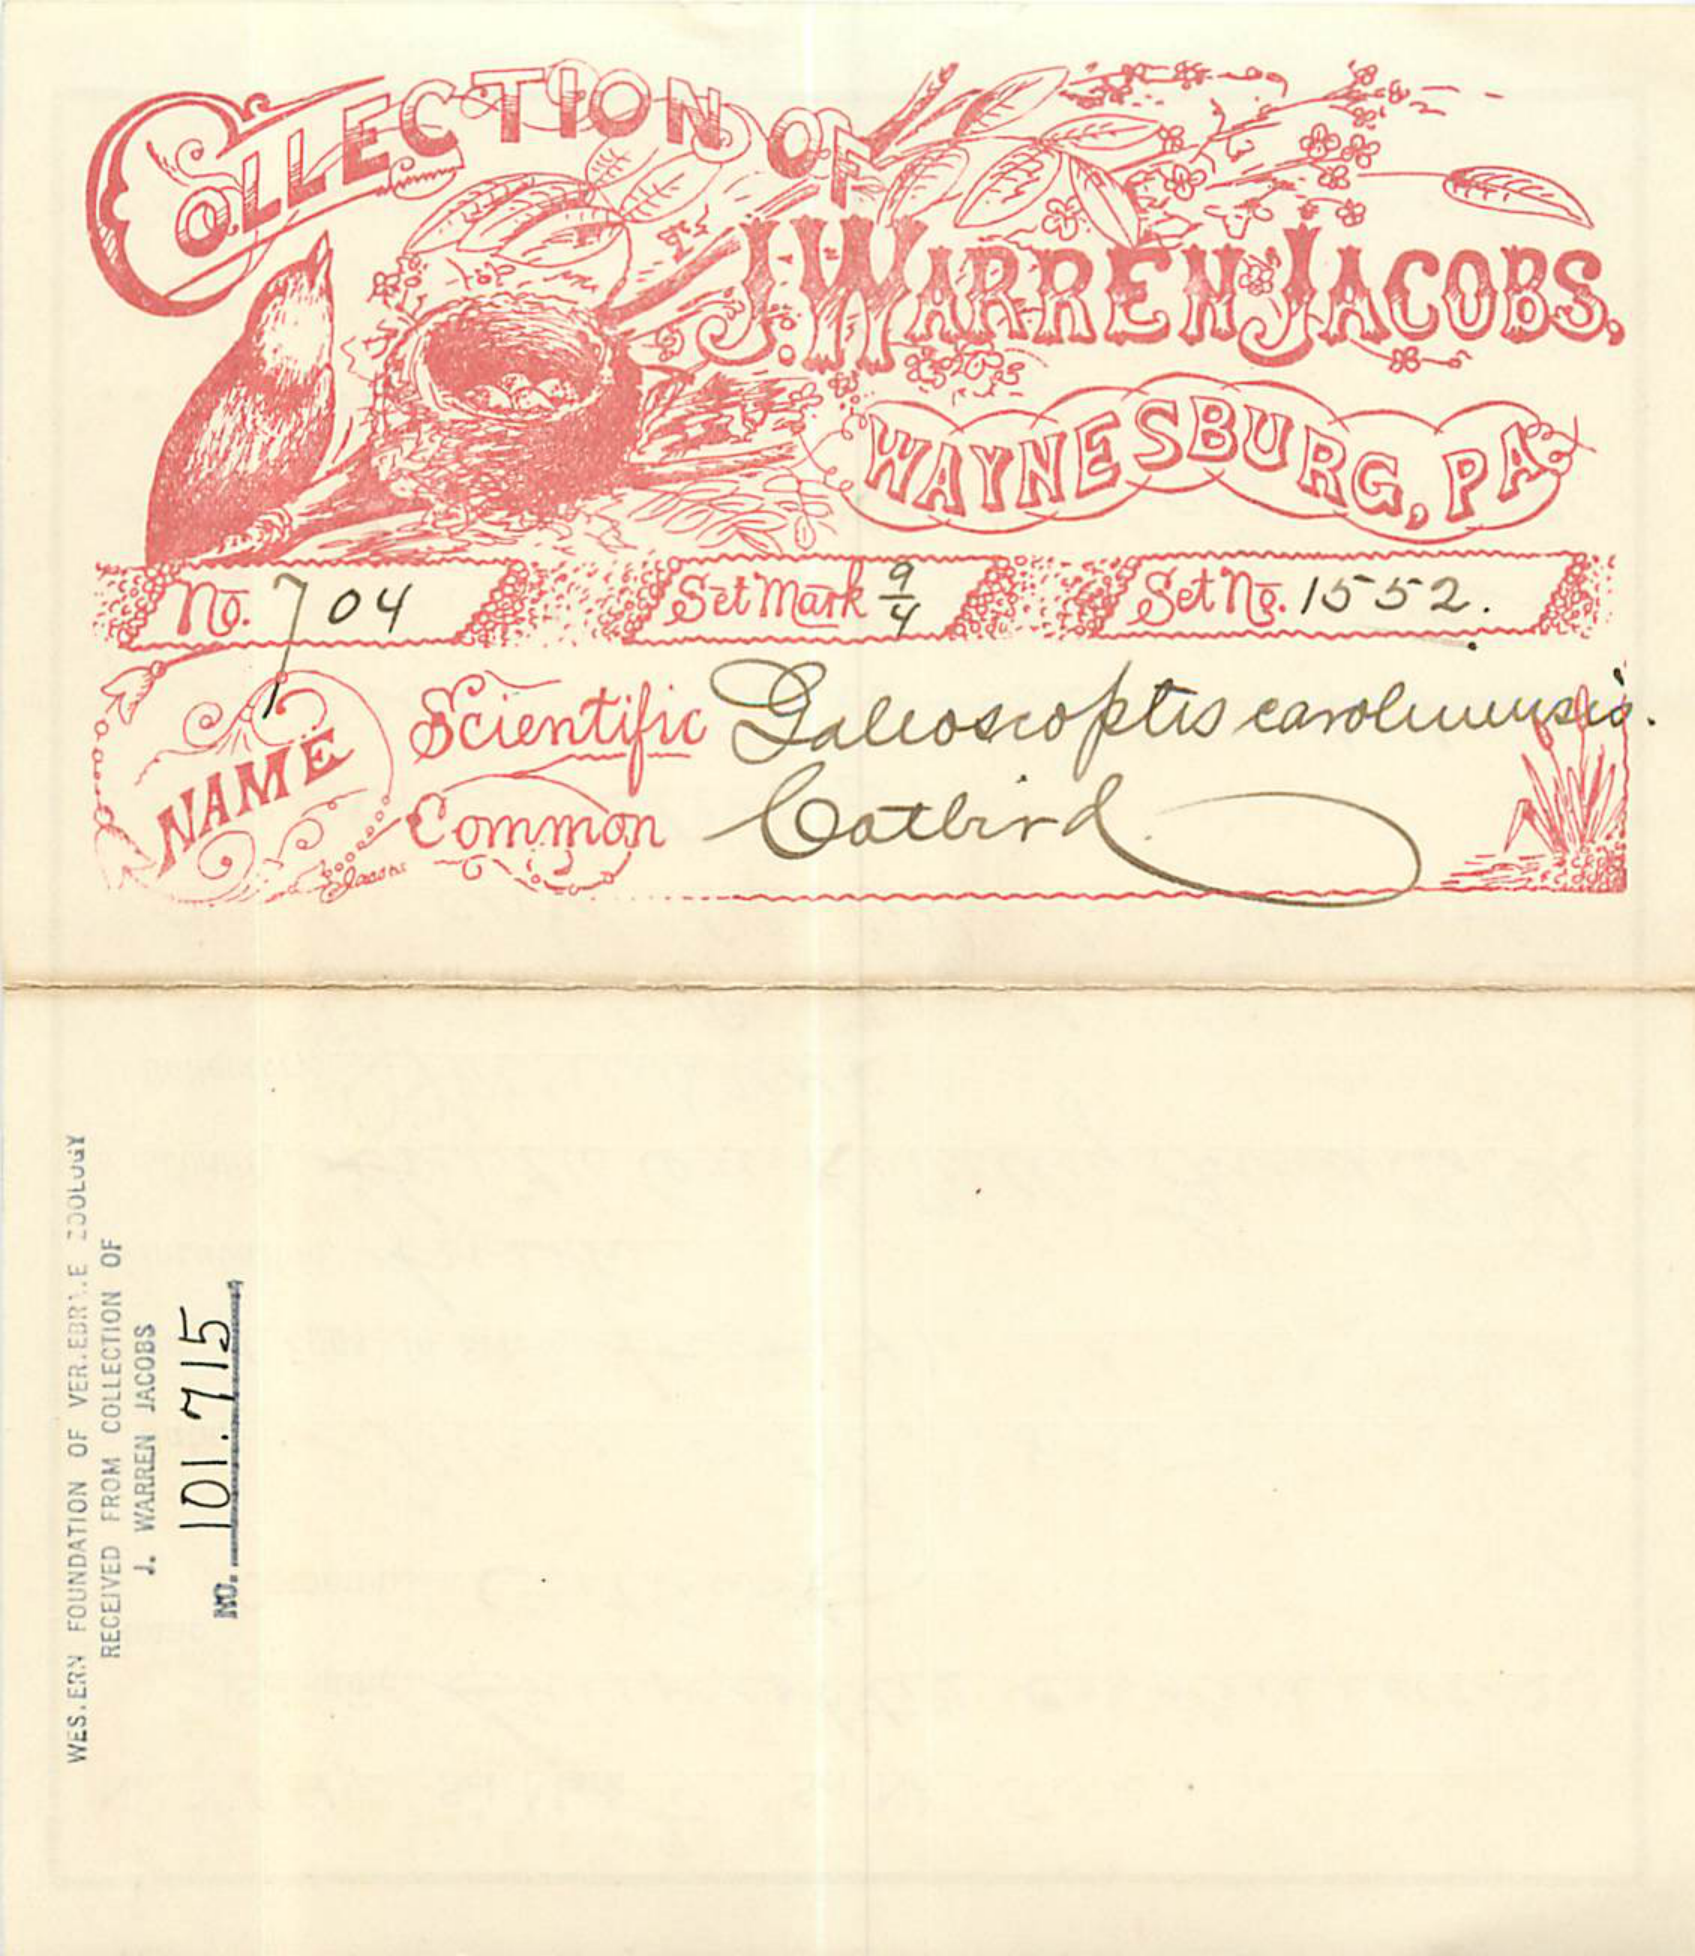 COLLECTION OF
J. WARREN JACOBS,
WAYNESBURG, PA.
No. 704 Set Mark 9/4 Set No. 1552.
NAME
Scientific Galeoscoptis carolinensis.
Common Catbird
Jacobs
WESTERN FOUNDATION OF VERTEBRATE ZOOLOGY
RECEIVED FROM COLLECTION OF
J. WARREN JACOBS
NO. 101.715